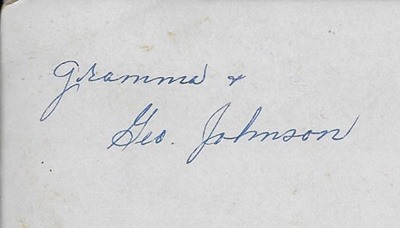 Gramma +
Geo. Johnson